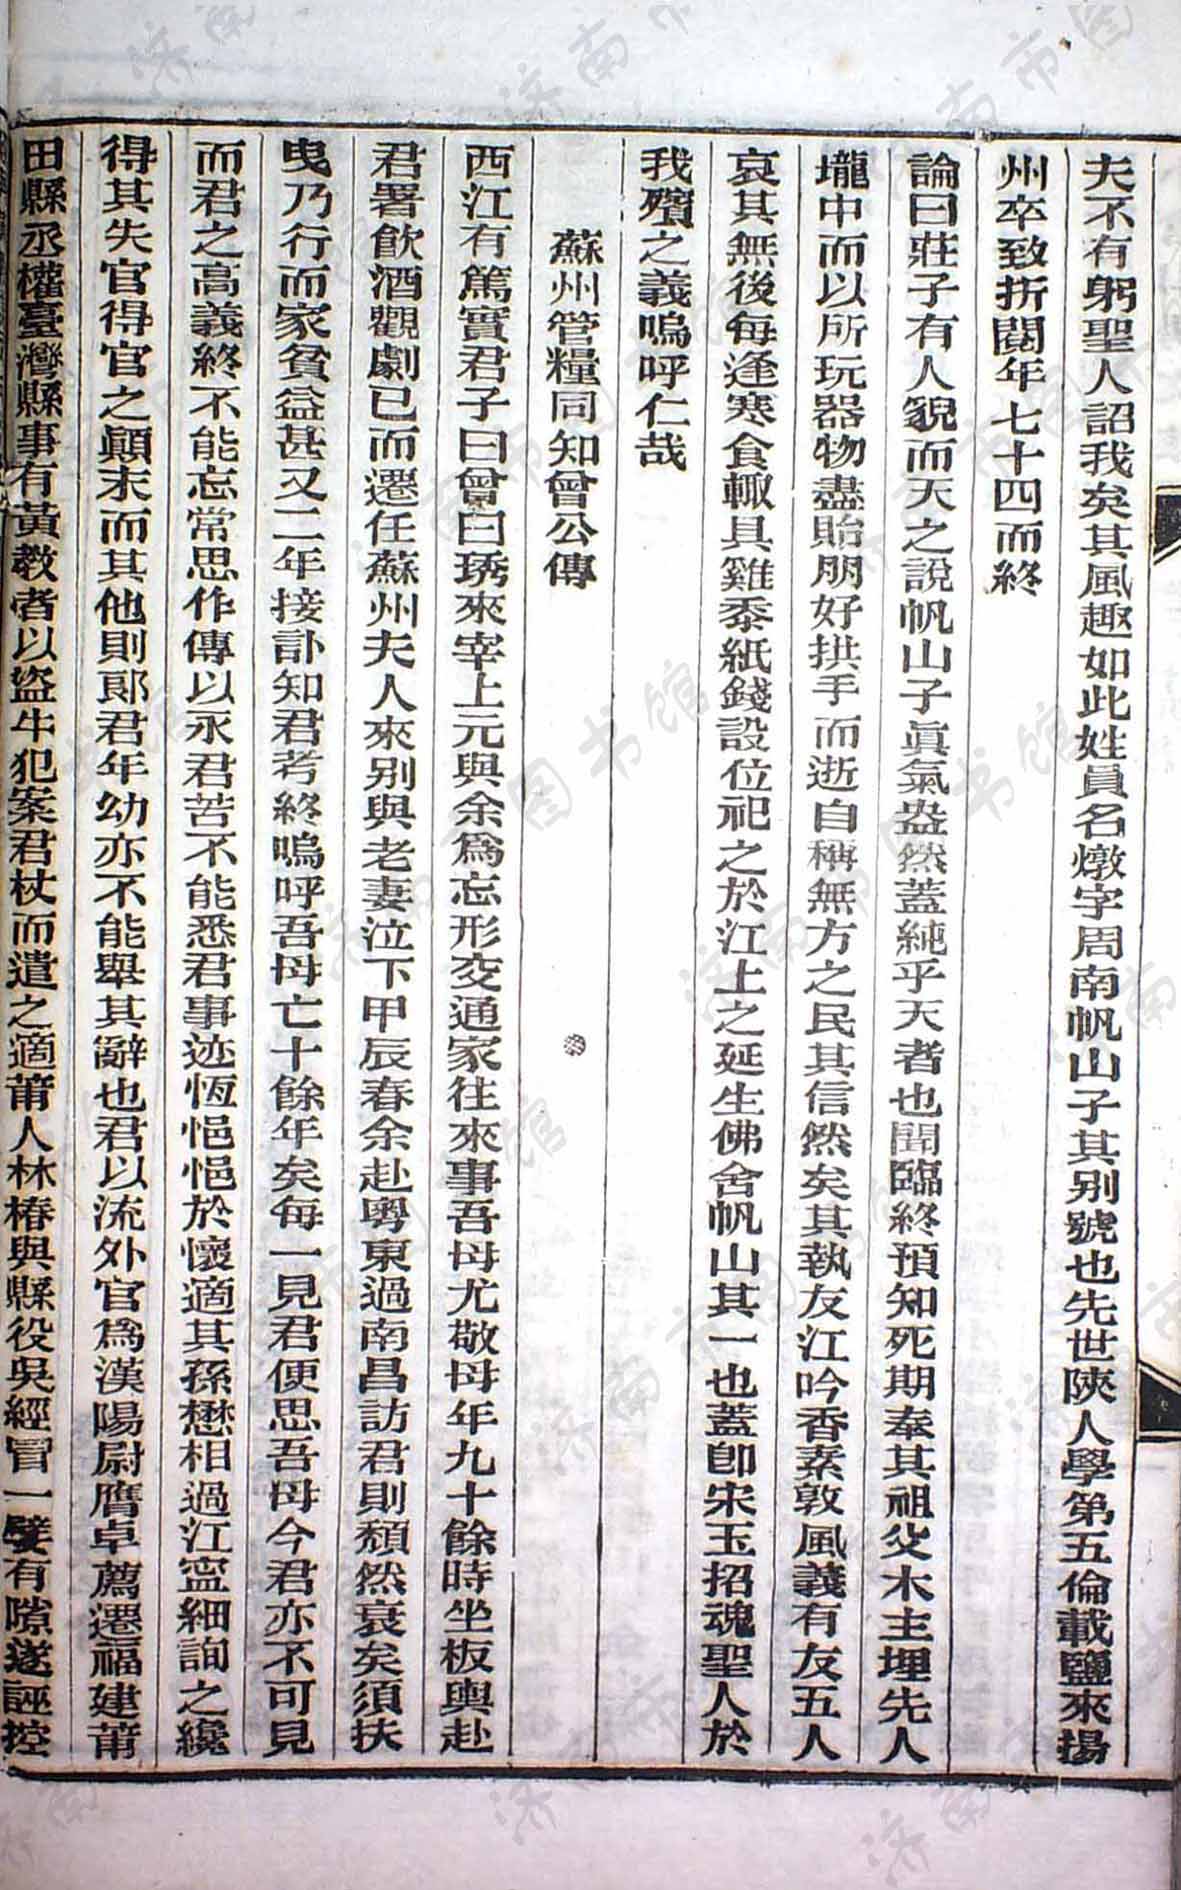 夫不有躬聖人詔我矣其風趣如此姓員名燉字周南帆山子其别號也先世陝人學第五倫載鹽來揚
州卒致折閱年七十四而終
論曰莊子有人貌而天之說帆山子眞氣盎然蓋純乎天者也聞臨終預知死期奉其祖父木主埋先人
壠中而以所玩器物盡貽朋好拱手而逝自稱無方之民其信然矣其執友江吟香素敦風義有友五人
哀其無後每逢寒食輙具雞黍紙錢設位祀之於江上之延生佛舍帆山其一也蓋卽宋玉招魂聖人於
我殯之義嗚呼仁哉
蘇州管糧同知曾公傳
西江有篤實君子曰曾曰琇來宰上元與余爲忘形交通家往來事吾母尤敬母年九十餘時坐板輿赴
君署飮酒觀劇已而遷任蘇州夫人來别與老妻泣下甲辰春余赴粤東過南昌訪君則頹然衰矣須扶
曳乃行而家貧益甚又二年接訃知君考終嗚呼吾母亡十餘年矣每一見君便思吾母今君亦不可見
而君之高義終不能忘常思作傳以永君苦不能悉君事迹恆悒悒於懷適其孫懋相過江寍細詢之纔
得其失官得官之顚末而其他則郞君年幼亦不能舉其辭也君以流外官爲漢陽尉膺卓薦遷福建莆
田縣丞權臺灣縣事有黃教者以盜牛犯案君杖而遣之適莆人林椿與縣役吳經冒一孽有隙遂誣控